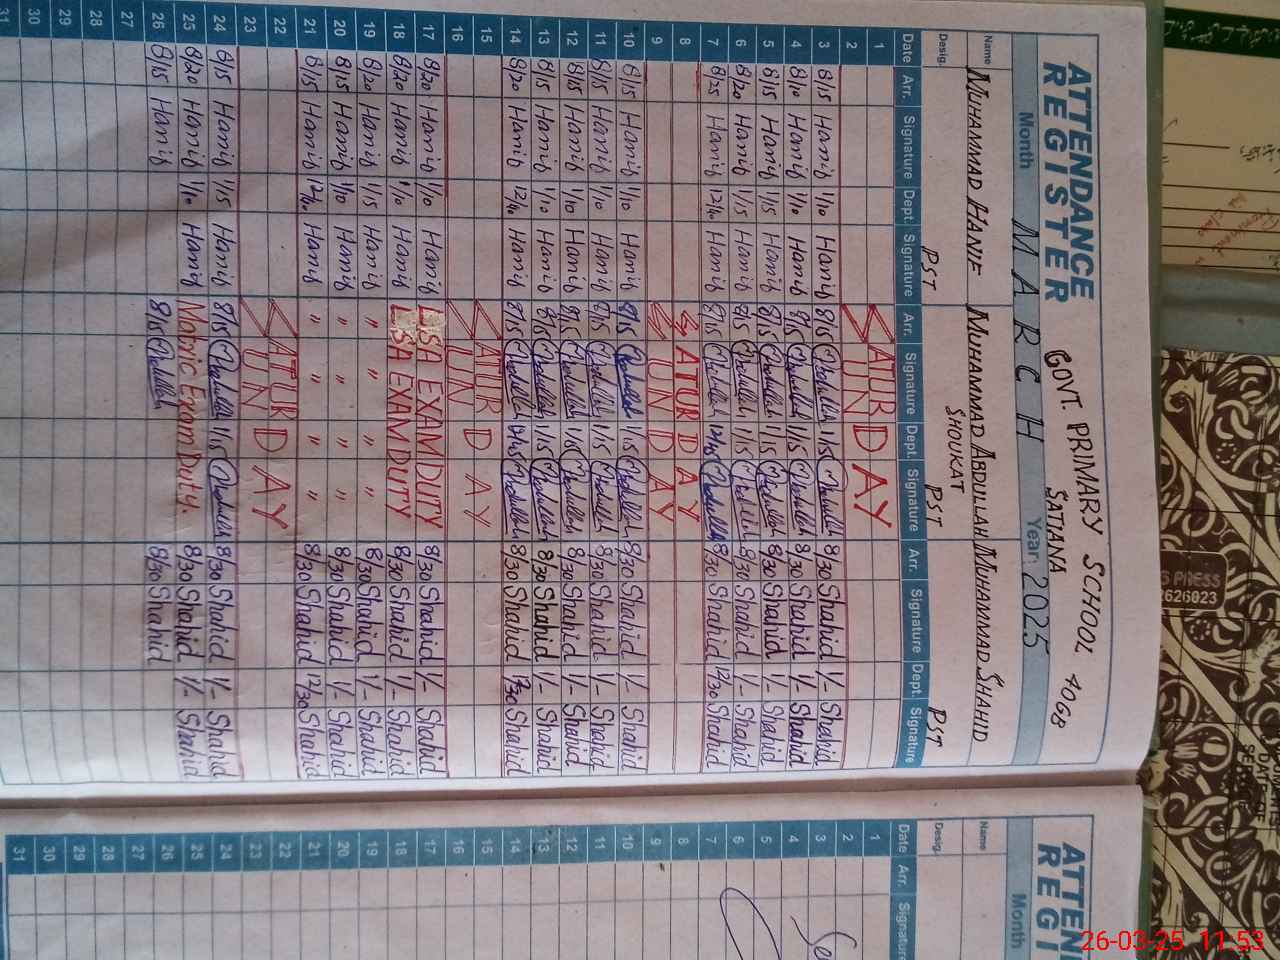 ATTENDANCE REGISTER
GOVT. PRIMARY SCHOOL 40GB
SATIANA
Month MARCH Year 2025
Name MUHAMMAD HANIF MUHAMMAD ABDULLAH SHOUKAT MUHAMMAD SHAHID
Desig. PST PST PST
Date Arr. Signature Dept. Signature Arr. Signature Dept. Signature Arr. Signature Dept. Signature
1 SATURDAY
2 SUNDAY
3 8/15 Hanif 1/10 Hanif 8/15 Abdullah 1/15 Abdullah 8/30 Shahid 1/- Shahid
4 8/10 Hanif 1/10 Hanif 8/15 Abdullah 1/15 Abdullah 8/30 Shahid 1/- Shahid
5 8/15 Hanif 1/15 Hanif 8/15 Abdullah 1/15 Abdullah 8/30 Shahid 1/- Shahid
6 8/20 Hanif 1/15 Hanif 8/15 Abdullah 1/15 Abdullah 8/30 Shahid 1/- Shahid
7 8/25 Hanif 12/10 Hanif 8/15 Abdullah 12/15 Abdullah 8/30 Shahid 12/30 Shahid
8 SATURDAY
9 SUNDAY
10 8/15 Hanif 1/10 Hanif 8/15 Abdullah 1/15 Abdullah 8/30 Shahid 1/- Shahid
11 8/15 Hanif 1/10 Hanif 8/15 Abdullah 1/15 Abdullah 8/30 Shahid 1/- Shahid
12 8/15 Hanif 1/10 Hanif 8/15 Abdullah 1/15 Abdullah 8/30 Shahid 1/- Shahid
13 8/15 Hanif 1/10 Hanif 8/15 Abdullah 1/15 Abdullah 8/30 Shahid 1/- Shahid
14 8/20 Hanif 12/10 Hanif 8/15 Abdullah 12/15 Abdullah 8/30 Shahid 12/30 Shahid
15 SATURDAY
16 SUNDAY
17 8/20 Hanif 1/10 Hanif LSA EXAM DUTY 8/30 Shahid 1/- Shahid
18 8/20 Hanif 1/10 Hanif LSA EXAM DUTY 8/30 Shahid 1/- Shahid
19 8/20 Hanif 1/15 Hanif " " " " 8/30 Shahid 1/- Shahid
20 8/15 Hanif 1/10 Hanif " " " " 8/30 Shahid 1/- Shahid
21 8/15 Hanif 12/10 Hanif " " " " 8/30 Shahid 12/30 Shahid
22 SATURDAY
23 SUNDAY
24 8/15 Hanif 1/15 Hanif 8/15 Abdullah 1/15 Abdullah 8/30 Shahid 1/- Shahid
25 8/20 Hanif 1/10 Hanif Matric Exam Duty. 8/30 Shahid 1/- Shahid
26 8/15 Hanif 8/15 Abdullah 8/30 Shahid
27
28
29
30
31
ATTEN
REGI
Month
Name
Desig.
Date Arr. Signature
1
2
3
4
5
6
7
8
9
10
11
12
13
14
15
16
17
18
19
20
21
22
23
24
25
26
27
28
29
30
31
PRESS
2626023
26-03-25 11:53